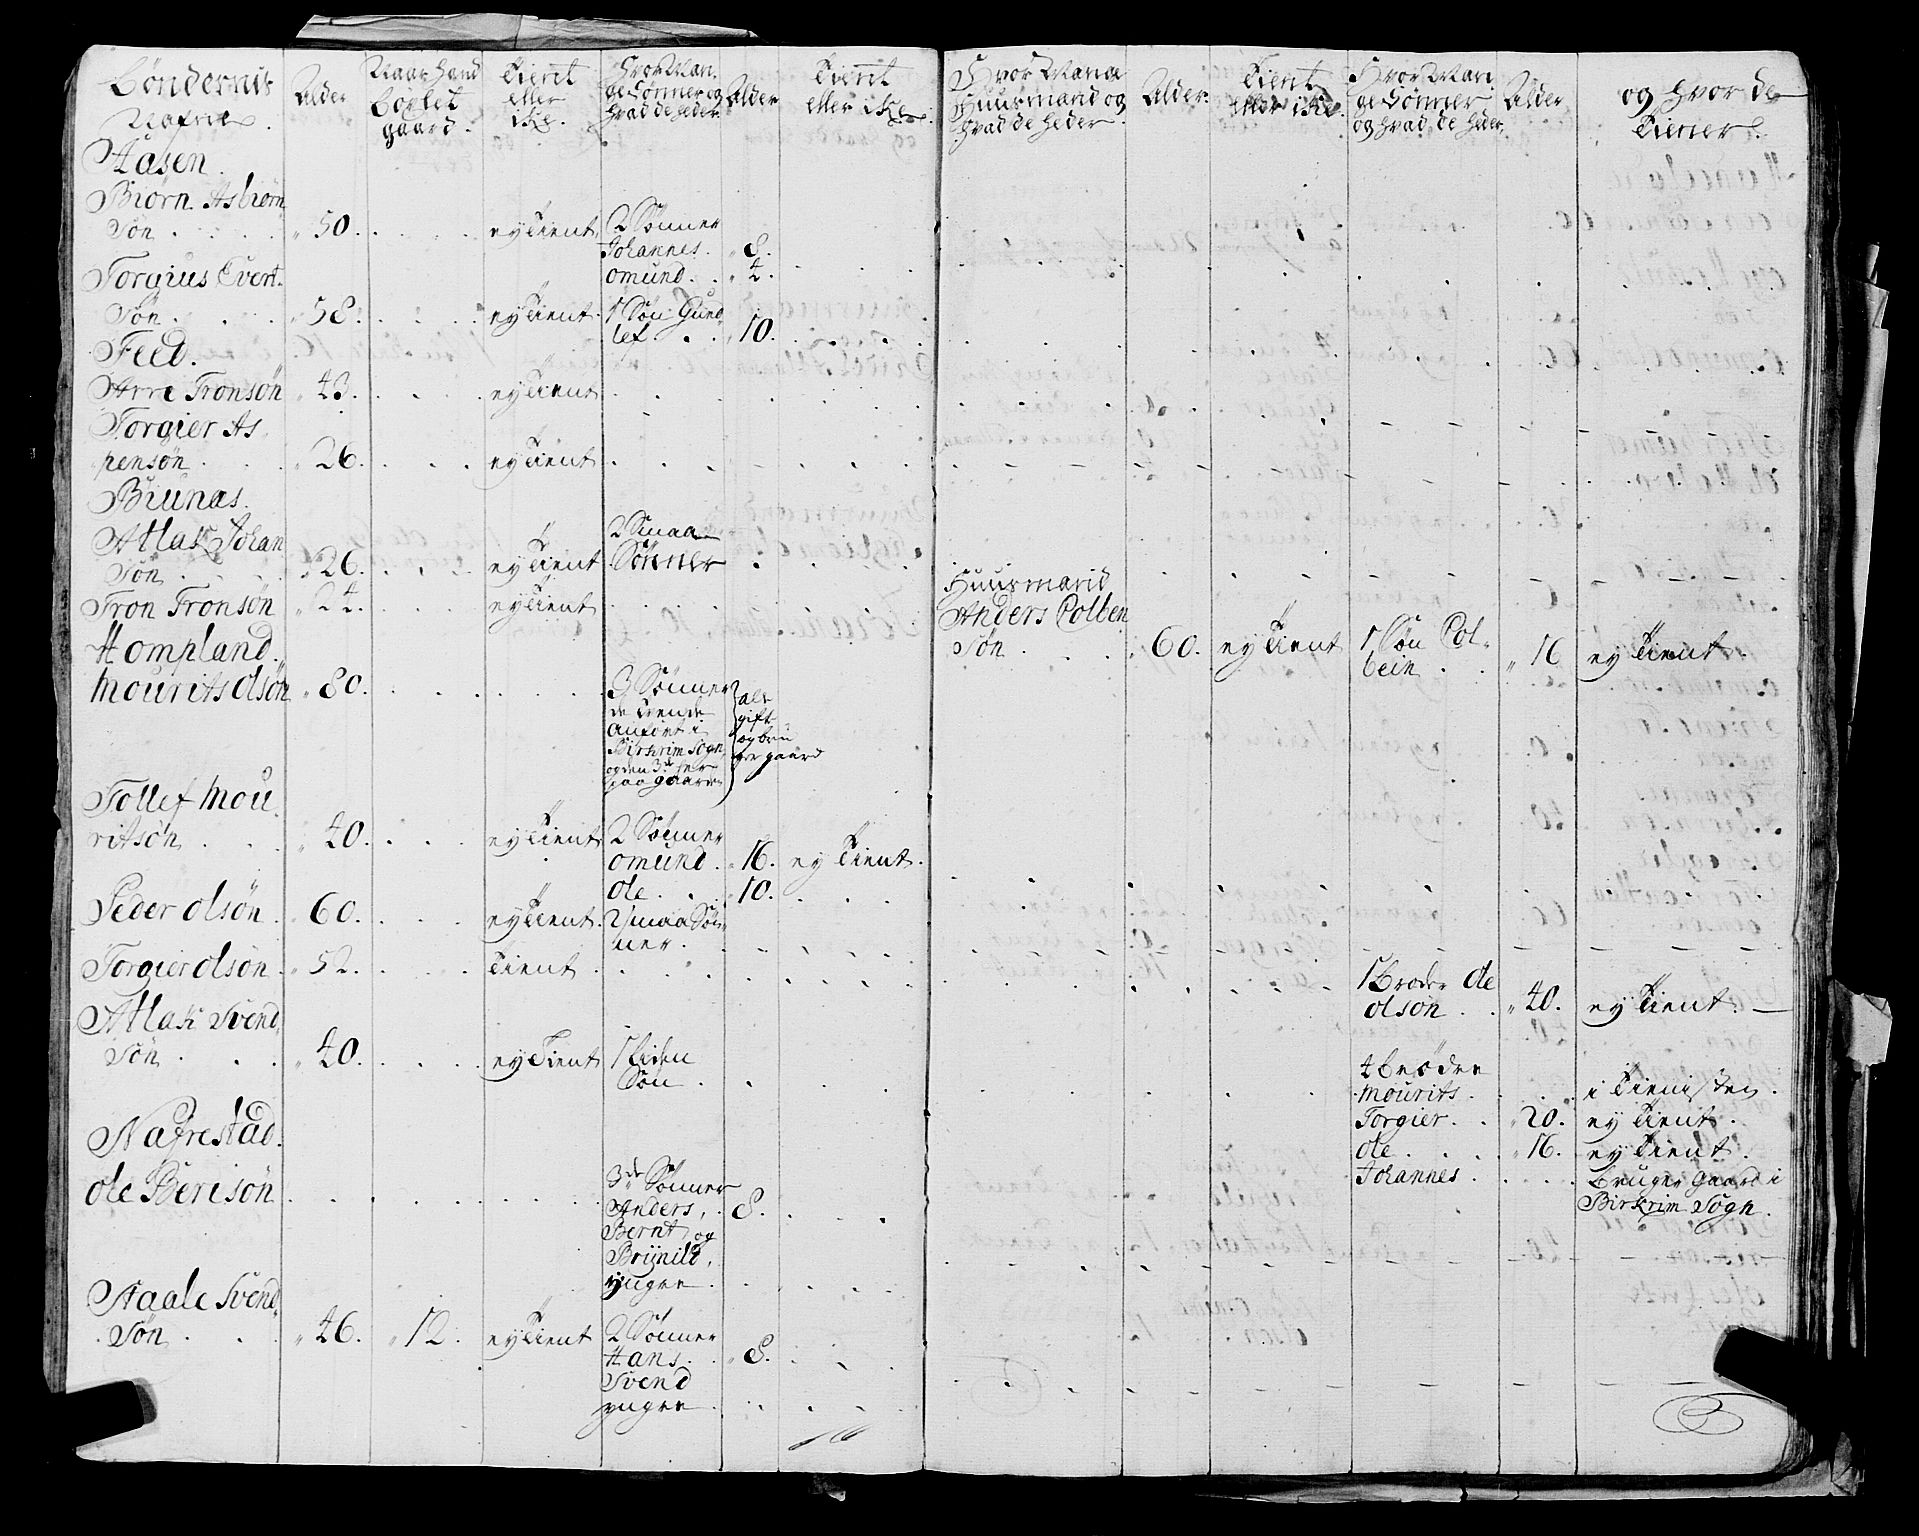 Bøndernis
Nafne.
Alder
Naar hand
børlet
gaard.
Tient
eller
ikke.
Hvor Man.
ge Sønner og
hvad de heder
Alder
Tient
eller ikke
Hvor Mange
Huusmænd og
hvad de heder.
Alder.
Tient
eller ikke.
Hvor Man
ge Sønner
og hvad de heder.
Alder
og hvor de
Tiener.
Aasen.
Biørn Asbiørn
Søn . . . 50. . . . ey Tient 2 Sønner
Johannes. 8.
omund. . 4.
Torgius Evert.
Søn . . . 58. . . . ey Tient. 1 Søn Gund
lef . . 10.
Feed.
Arne Tronsøn 43. . . . ey Tient
Torgier As
pensøn . . 26. . . . ey Tient
Biunas.
Atlak Johan
Søn . . 26. . . . ey Tient
2 Smaa
Sønner
Tron Tronsøn 24. . . . ey Tient
Huusmand
Anders Colben
Søn . . . 60. ey Tient 1 Søn Col-
bein . . 16 ey Tient.
Hompland.
Mourits Olsøn 80. . . . 3 Sønner
de Tvende
anført i
Birkrim Sogn,
og den 3de her
paa gaarden
alle
gift
og bru
ger gaard
Tollef Mou
ritsøn . . . 40. . . . ey Tient 2 Sønner
omund . 16. ey Tient.
Ole . . 10.
Peder Olsøn . 60. . . . ey Tient. 2 smaa Søn-
ner.
Torgier Olsøn . 52. . . . Tient .
1 Broder Ole
Olsøn . . 40. ey Tient.
Atlak Svend
Søn . . . 40. . . . ey Tient 1 liden
Søn .
4 brødre
Mourits. . . . i Tienisten.
Torgier. . 20. ey Tient.
Ole. . . . 16. ey Tient.
Johannes. . . . bruger Gaard i
Birkrim Sogn.
Nafrestad.
Ole Berisøn . . . 3de Sønner
Anders, . 8.
Bernt og
Brynild,
yngre .
Aaale Svend
Søn . . . 46. 12. ey Tient 2 Sønner
Hans. . 8.
Svend
yngre .